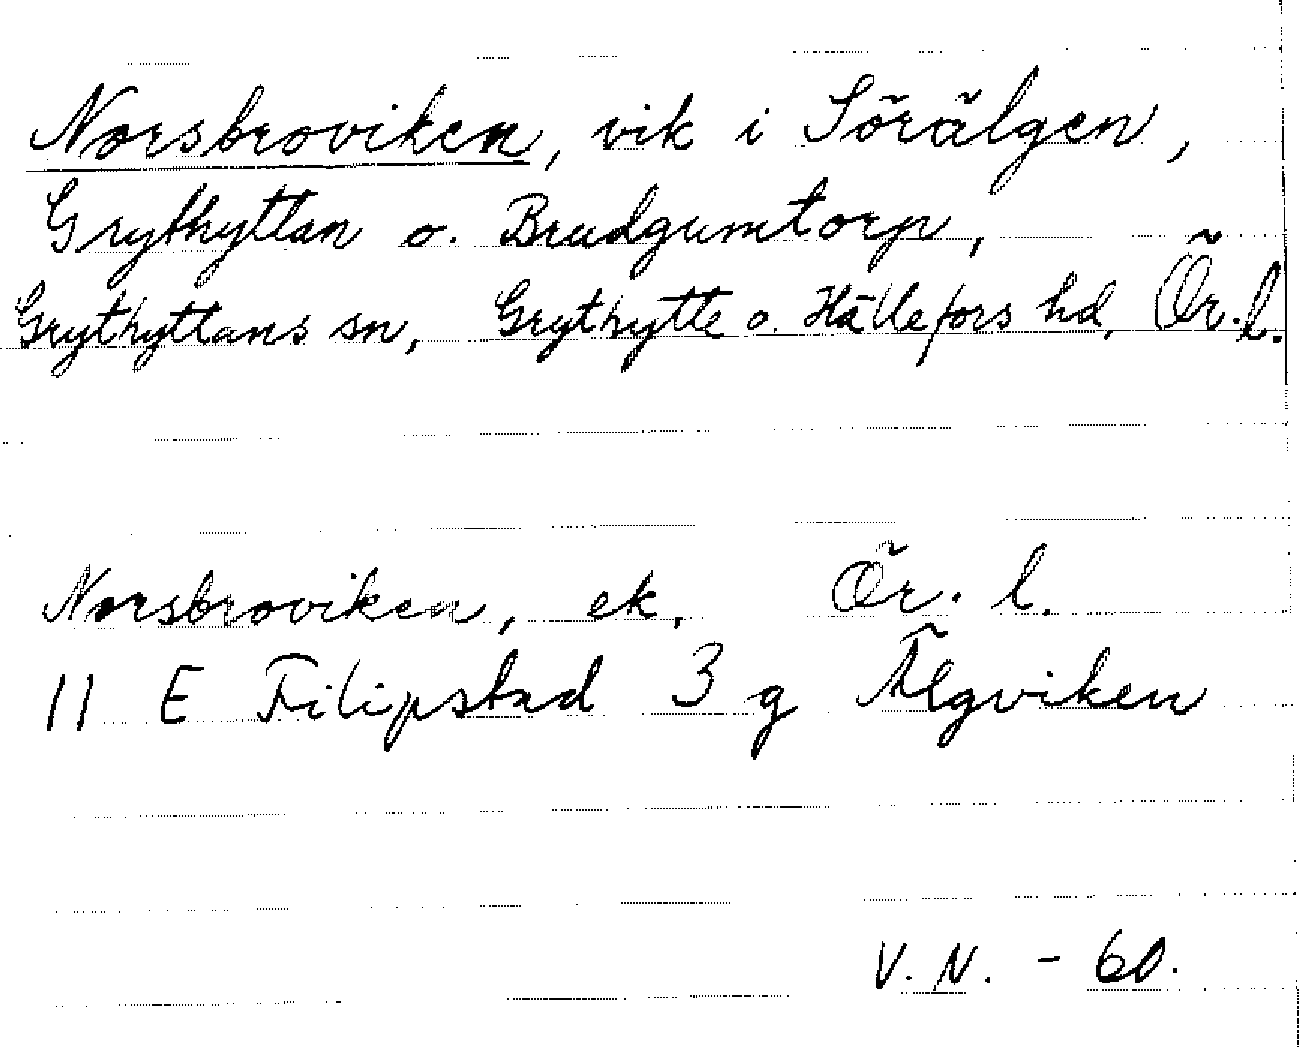 Norsbroviken, vik i Sörälgen,
Grythyttan o. Brudgumtorp,
Grythyttans sn, Grythytte o. Hällefors hd, Ör. l.
Norsbroviken, ek, Ör. l.
11 E Filipstad 3 g Älgviken
V. N. - 60.